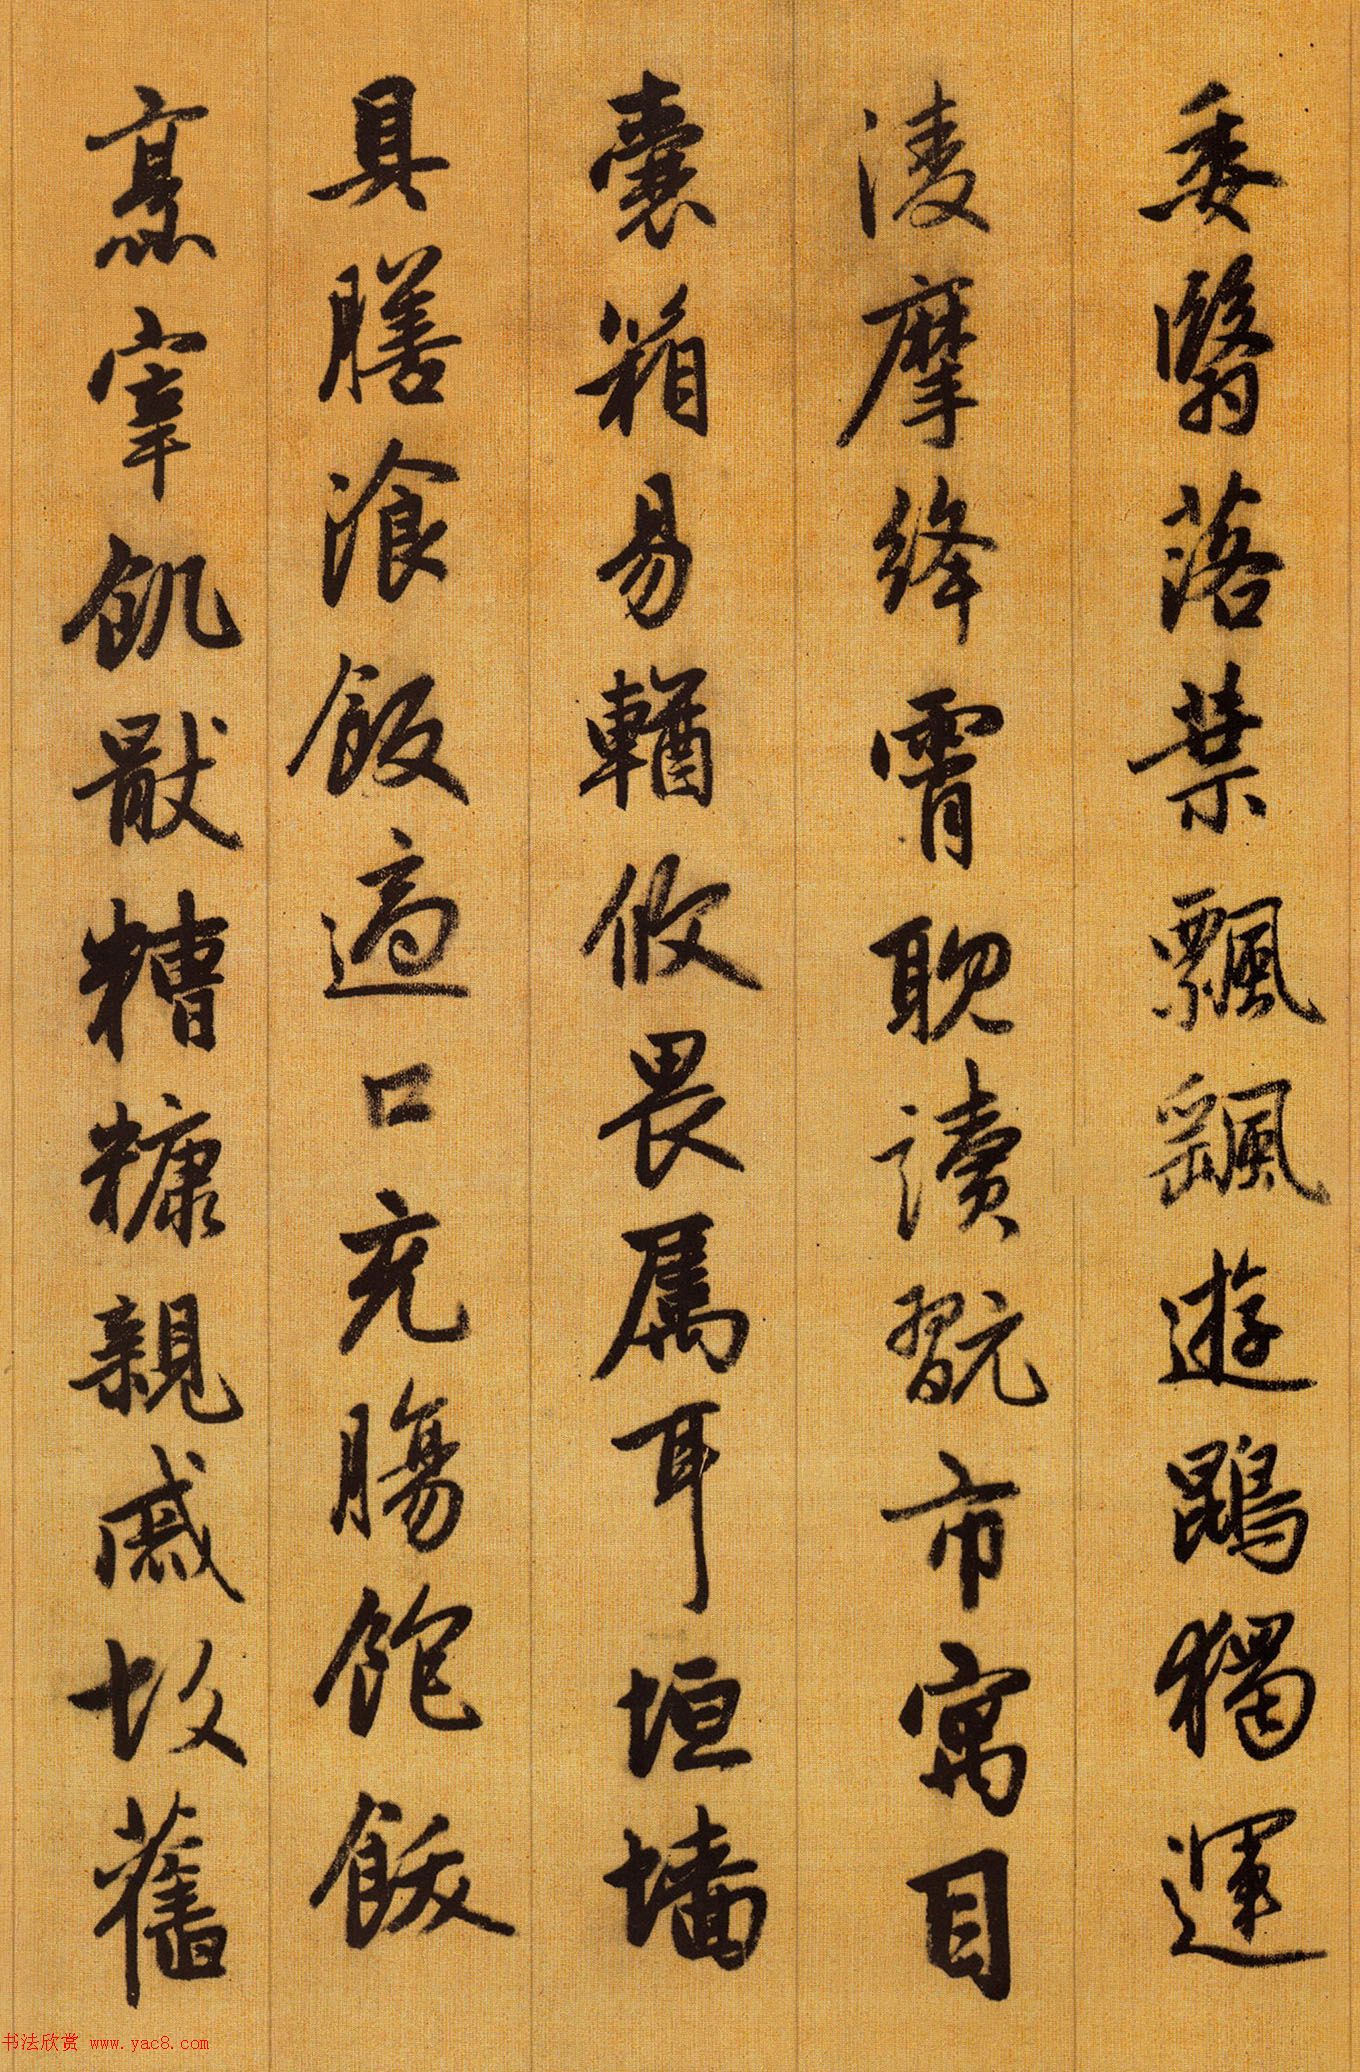 委翳落葉飄飖遊鵾獨運
淩摩絳霄耽讀翫市寓目
囊箱易輶攸畏属耳垣墻
具膳飡飯適口充膓飽飫
烹宰飢猒糟糠親戚故舊
书法欣赏 www.yac8.com